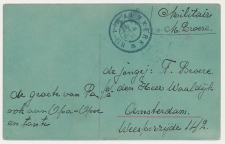 Militair
M. Broere.
de jongej: F. Broere
p/a den Heer Waaldijk
Amsterdam.
Weesperzyde 142.
de groete van Pa,
ook aan Opa-Opoe
en tante